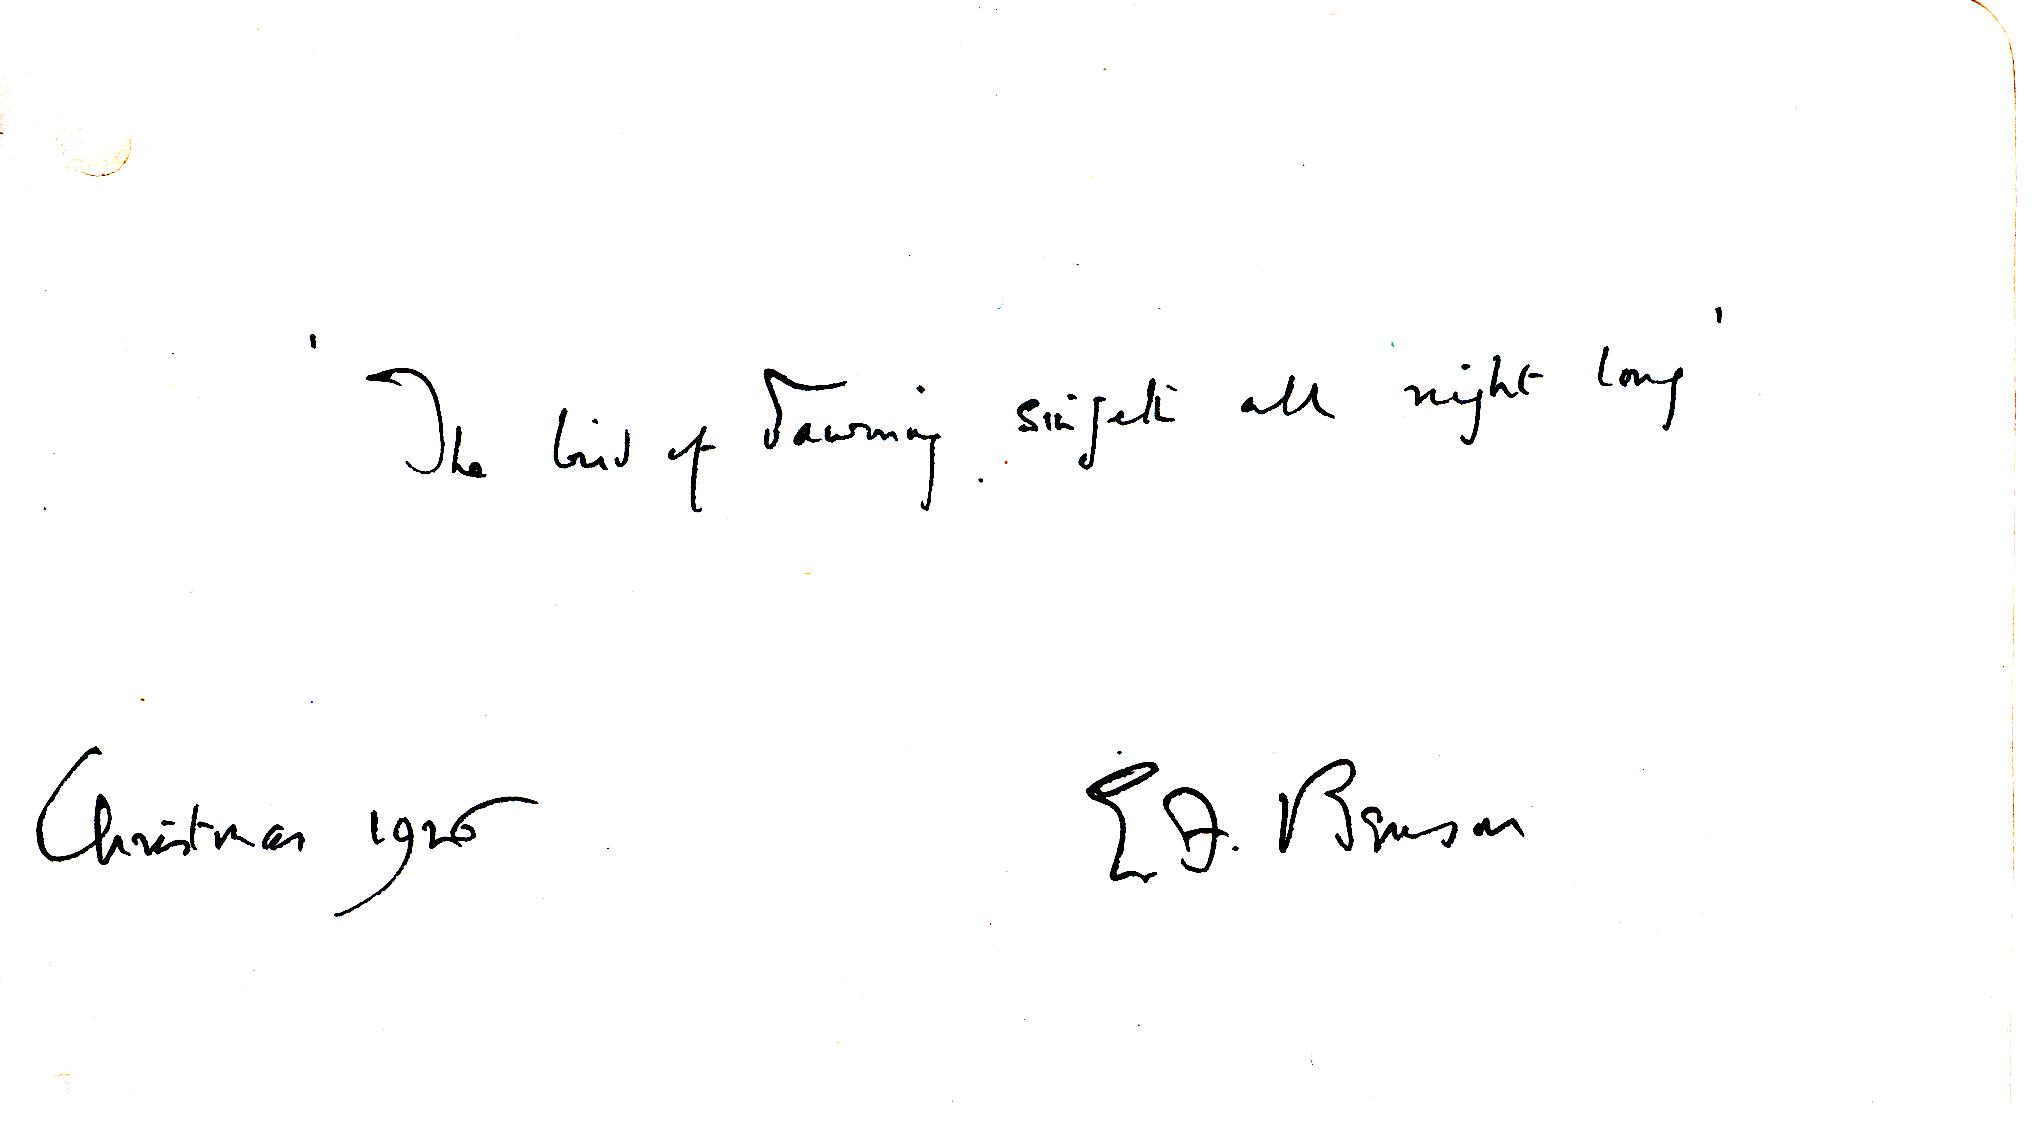 'The bird of dawning singeth all night long'
Christmas 1926
E. F. Benson